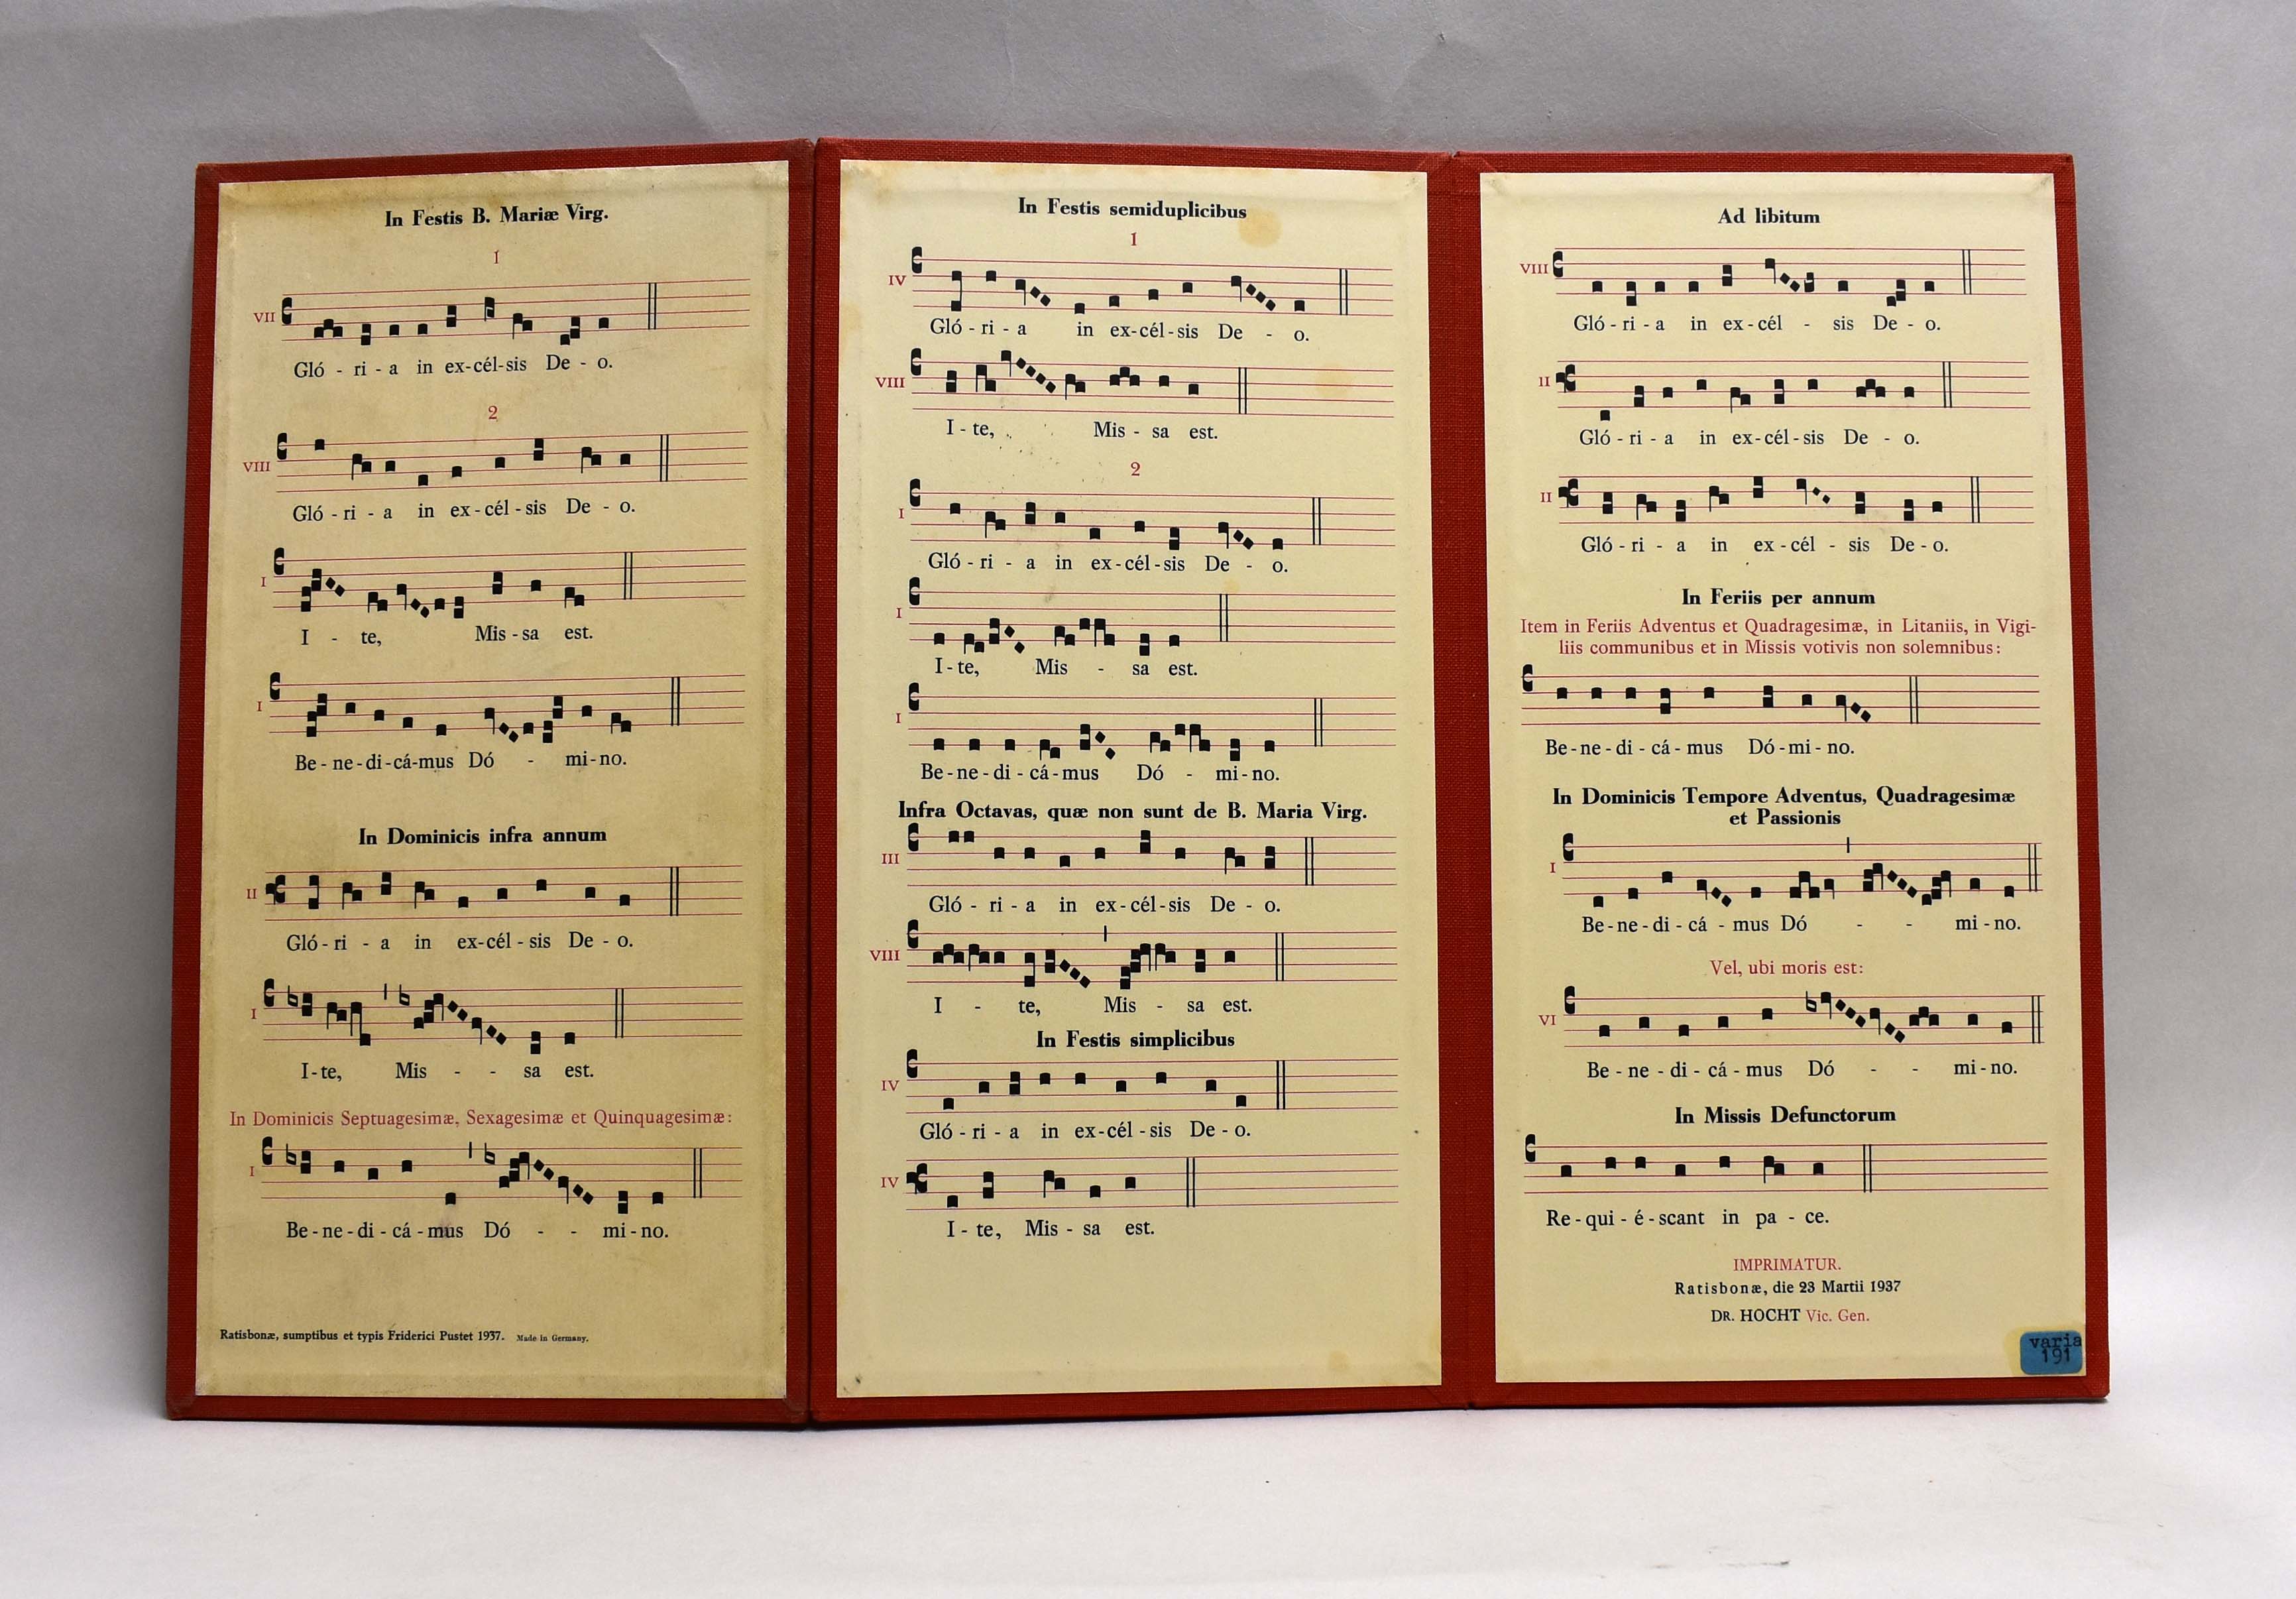 In Festis B. Mariæ Virg.
1
VII
Gló - ri - a in ex-cél-sis De - o.
2
VIII
Gló - ri - a in ex-cél-sis De - o.
I
I - te, Mis-sa est.
I
Be-ne-di-cá-mus Dó - mi-no.
In Dominicis infra annum
II
Gló-ri - a in ex-cél-sis De - o.
I
I-te, Mis - - sa est.
In Dominicis Septuagesimæ, Sexagesimæ et Quinquagesimæ:
I
Be-ne-di-cá-mus Dó - - mi-no.
Ratisbonæ, sumptibus et typis Friderici Pustet 1937. Made in Germany.
In Festis semiduplicibus
1
IV
Gló-ri-a in ex-cél-sis De - o.
VIII
I-te, Mis-sa est.
2
I
Gló-ri - a in ex-cél-sis De - o.
I
I-te, Mis - sa est.
I
Be-ne-di-cá-mus Dó - mi-no.
Infra Octavas, quæ non sunt de B. Maria Virg.
III
Gló - ri-a in ex-cél-sis De - o.
VIII
I - te, Mis - sa est.
In Festis simplicibus
IV
Gló-ri-a in ex-cél-sis De-o.
IV
I-te, Mis-sa est.
Ad libitum
VIII
Gló-ri-a in ex-cél - sis De-o.
II
Gló-ri-a in ex-cél-sis De - o.
II
Gló-ri - a in ex-cél - sis De-o.
In Feriis per annum
Item in Feriis Adventus et Quadragesimæ, in Litaniis, in Vigi-
liis communibus et in Missis votivis non solemnibus:
Be-ne-di-cá-mus Dó-mi-no.
In Dominicis Tempore Adventus, Quadragesimæ
et Passionis
I
Be-ne-di-cá - mus Dó - - mi-no.
Vel, ubi moris est:
VI
Be-ne-di-cá-mus Dó - - mi-no.
In Missis Defunctorum
Re-qui-é-scant in pa-ce.
IMPRIMATUR.
Ratisbonæ, die 23 Martii 1937
DR. HOCHT Vic. Gen.
varia
191